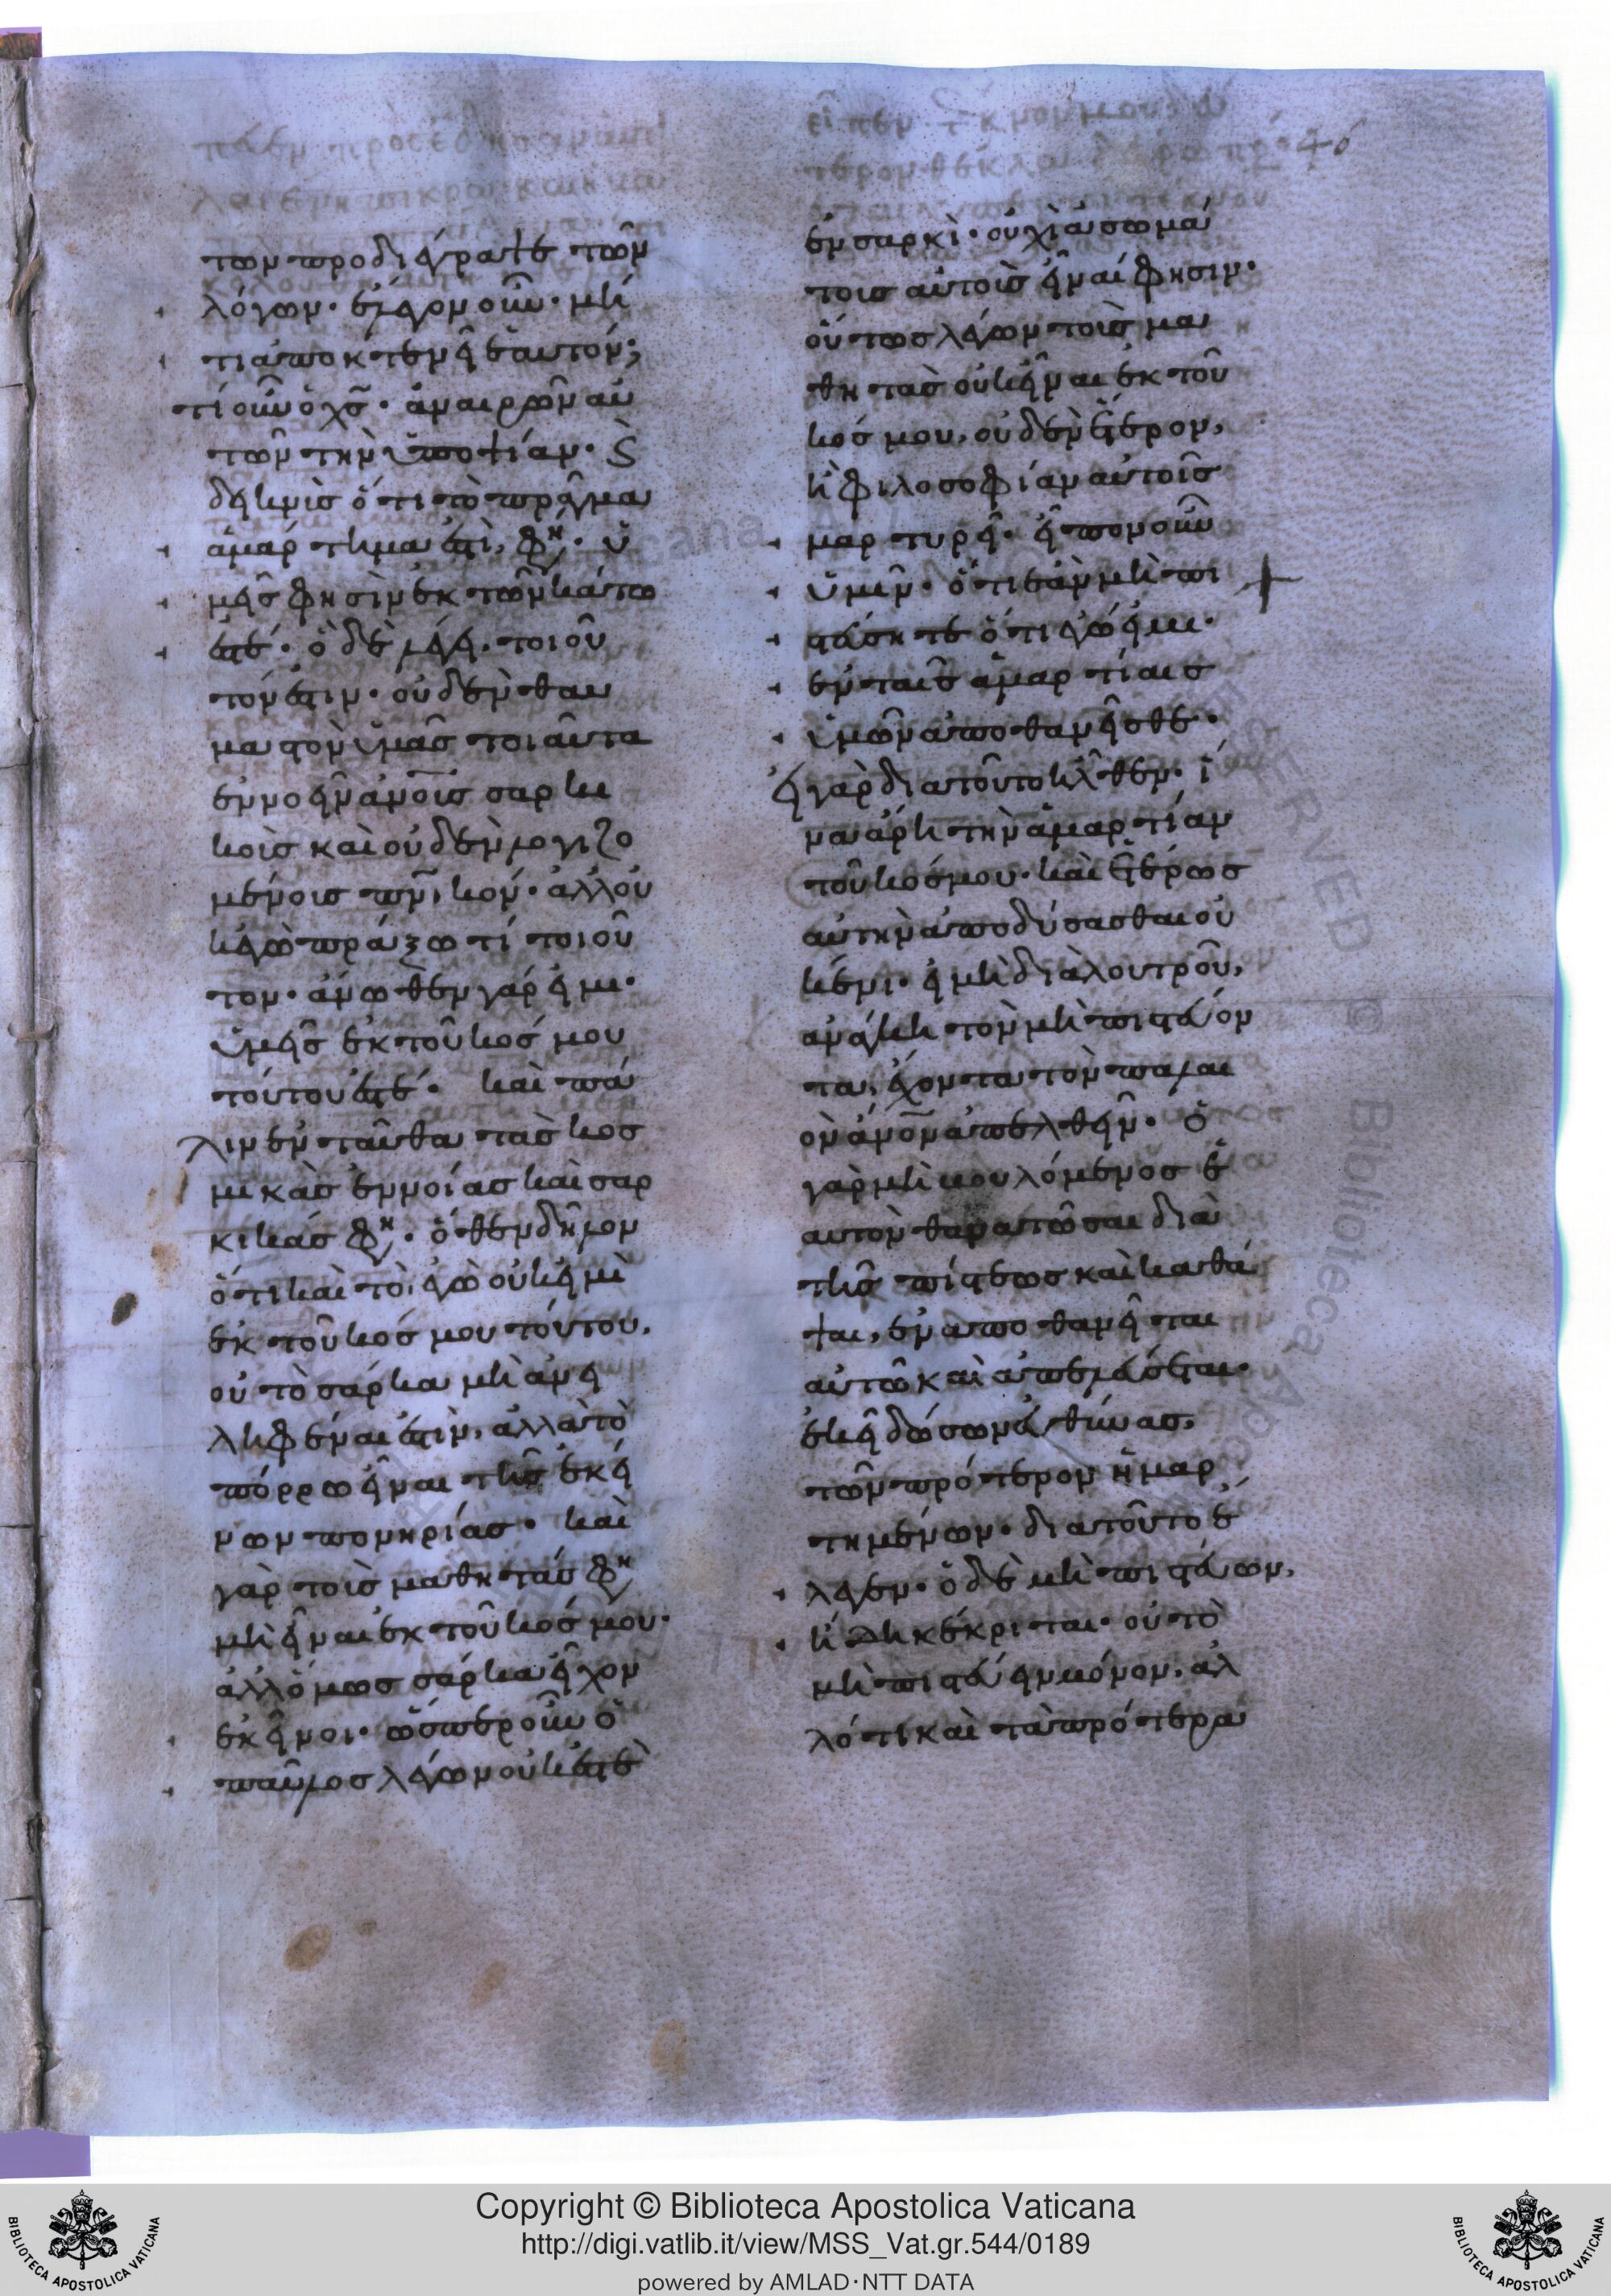 των προδιέφθαρται τῶν
λόγων. ἔλεγον οὖν. μή
τι ἀποκτενεῖ ἑαυτόν;
τί οὖν ὁ χ̅ς̅. ἀναιρῶν αὐ
τῶν τὴν ὑποψίαν. καὶ
δεικνὺς ὅτι τὸ πρᾶγμα
ἁμάρτημά ἐστι, φη. ὑ
μεῖς φησὶν ἐκ τῶν κάτω
ἐστέ. ὁ δὲ λέγει. τοιοῦ
τόν ἐστιν. οὐδὲν θαυ
μαστὸν ὑμᾶς τοιαῦτα
ἐννοεῖν ἀν̅ο̅ις σαρκι
κοῖς καὶ οὐδὲν λογιζο
μένοις πν̅ικόν. ἀλλ' οὐ
κ ἐγὼ πράξω τί τοιοῦ
τον. ἄνωθεν γάρ εἰμι.
ὑμεῖς ἐκ τοῦ κόσμου
τούτου ἐστέ. καὶ πά
λιν ἐνταῦθα τὰς κοσ
μικὰς ἐννοίας καὶ σαρ
κικάς φη. ὅθεν δῆλον
ὅτι καὶ τὸ, ἐγὼ οὐκ εἰμὶ
ἐκ τοῦ κόσμου τούτου,
οὐ τὸ σάρκα μὴ ἀνει
ληφέναι ἐστὶν, ἀλλὰ τὸ
πόρρω εἶναι τῆς ἐκεί
νων πονηρίας. καὶ
γὰρ τοῖς μαθηταῖς φη
μὴ εἶναι ἐκ τοῦ κόσμου.
ἀλλ' ὅμως σάρκα εἶχον
ἐκεῖνοι. ὥσπερ οὖν ὁ
παῦλος λέγων οὐκ ἐστὲ
46
ἐν σαρκὶ. οὐχὶ ἀσωμά
τους αὐτοὺς εἶναί φησιν.
οὕτως λέγων τοὺς μα
θητὰς οὐκ εἶναι ἐκ τοῦ
κόσμου, οὐδὲν ἕτερον,
ἢ φιλοσοφίαν αὐτοῖς
μαρτυρεῖ. εἶπον οὖν
ὑμῖν. ὅτι ἐὰν μὴ πι
στεύσητε ὅτι ἐγώ εἰμι.
ἐν ταῖς ἁμαρτίαις
ὑμῶν ἀποθανεῖσθε.
εἰ γὰρ διὰ τοῦτο ἦλθεν. ἵ
να ἄρῃ τὴν ἁμαρτίαν
τοῦ κόσμου. καὶ ἑτέρως
αὐτὴν ἀποδύσασθαι οὐ
κ ἔνι. εἰ μὴ διὰ λουτροῦ,
ἀνάγκη τὸν μὴ πιστεύον
τα, ἔχοντα τὸν παλαι
ὸν ἄν̅ο̅ν ἀπελθεῖν. ὁ
γὰρ μὴ βουλόμενος ἑ
αυτὸν θανατῶσαι διὰ
τῆς πίστεως καὶ καθά
ψαι, ἐναποθανεῖται
αὐτῷ καὶ ἀπελεύσεται.
ἐκεῖ δώσων εὐθύνας,
τῶν πρότερον ἡμαρ
τημένων. διὰ τοῦτο ἔ
λεγεν. ὁ δὲ μὴ πιστεύων,
ἤδη κέκριται. οὐ τῷ
μὴ πιστεύειν μόνον, ἀλ
λ' ὅτι καὶ τὰ πρότερα
Copyright © Biblioteca Apostolica Vaticana
http://digi.vatlib.it/view/MSS_Vat.gr.544/0189
powered by AMLAD·NTT DATA
BIBLIOTECA APOSTOLICA VATICANA
BIBLIOTECA APOSTOLICA VATICANA